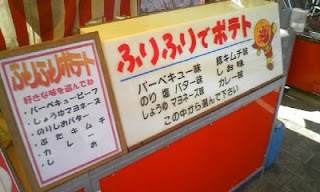 ふりふりポテト
好きな味を選んでね
・バーベキュービーフ
・しょうゆマヨネーズ
・のりしおバター
・ぶたキムチ
・カレー
・しお
ふりふりでポテト
バーベキュー味
豚キムチ味
のり塩バター味
しお味
しょうゆマヨネーズ味
カレー味
この中から選んで下さい